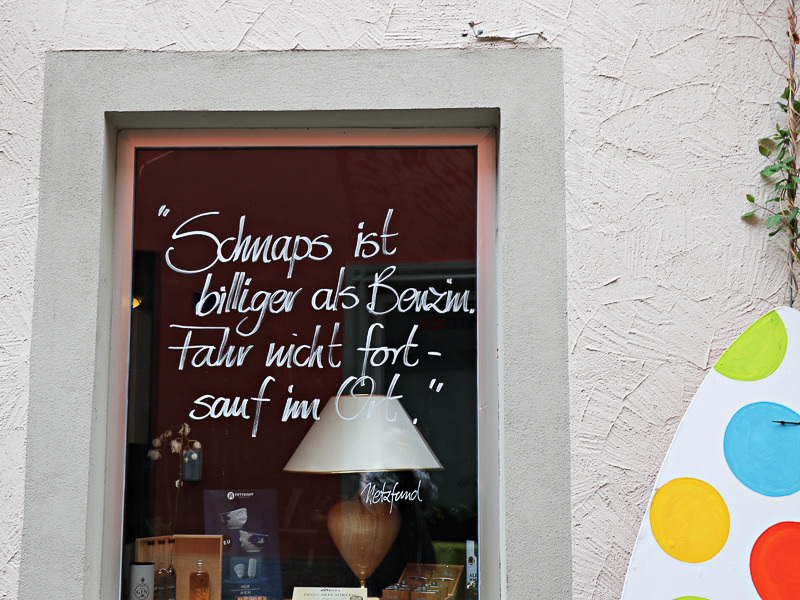 "Schnaps ist
billiger als Benzin.
Fahr nicht fort -
sauf im Ort."
Netzfund
FIFTYEIGHT
GIN